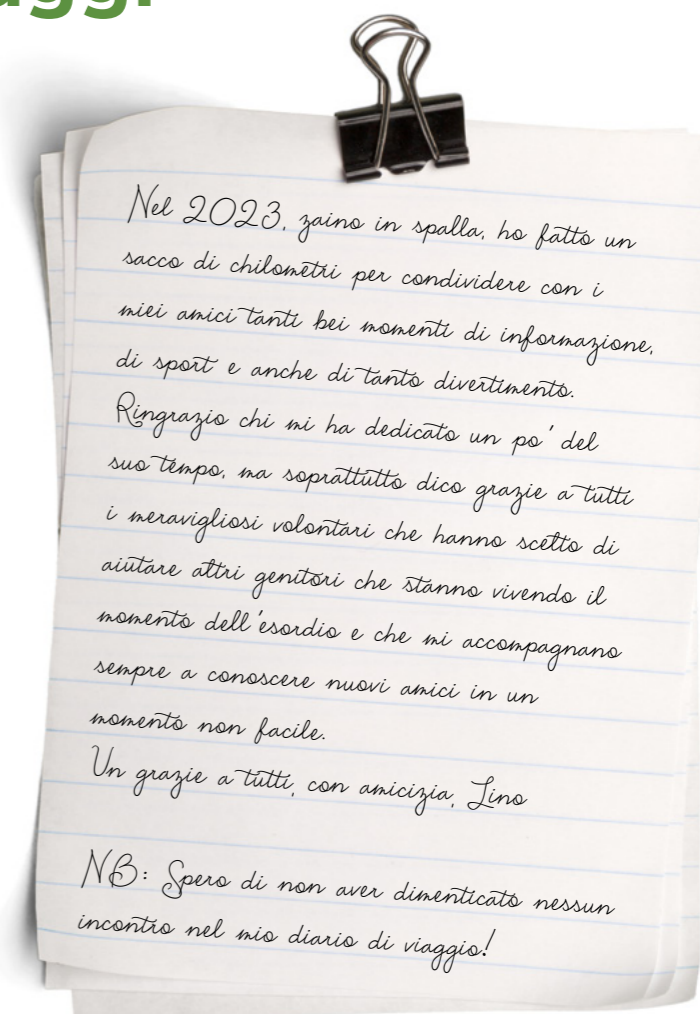 Nel 2023, zaino in spalla, ho fatto un
sacco di chilometri per condividere con i
miei amici tanti bei momenti di informazione,
di sport e anche di tanto divertimento.
Ringrazio chi mi ha dedicato un po' del
suo tempo, ma soprattutto dico grazie a tutti
i meravigliosi volontari che hanno scelto di
aiutare altri genitori che stanno vivendo il
momento dell'esordio e che mi accompagnano
sempre a conoscere nuovi amici in un
momento non facile.
Un grazie a tutti, con amicizia, Lino
NB: Spero di non aver dimenticato nessun
incontro nel mio diario di viaggio!